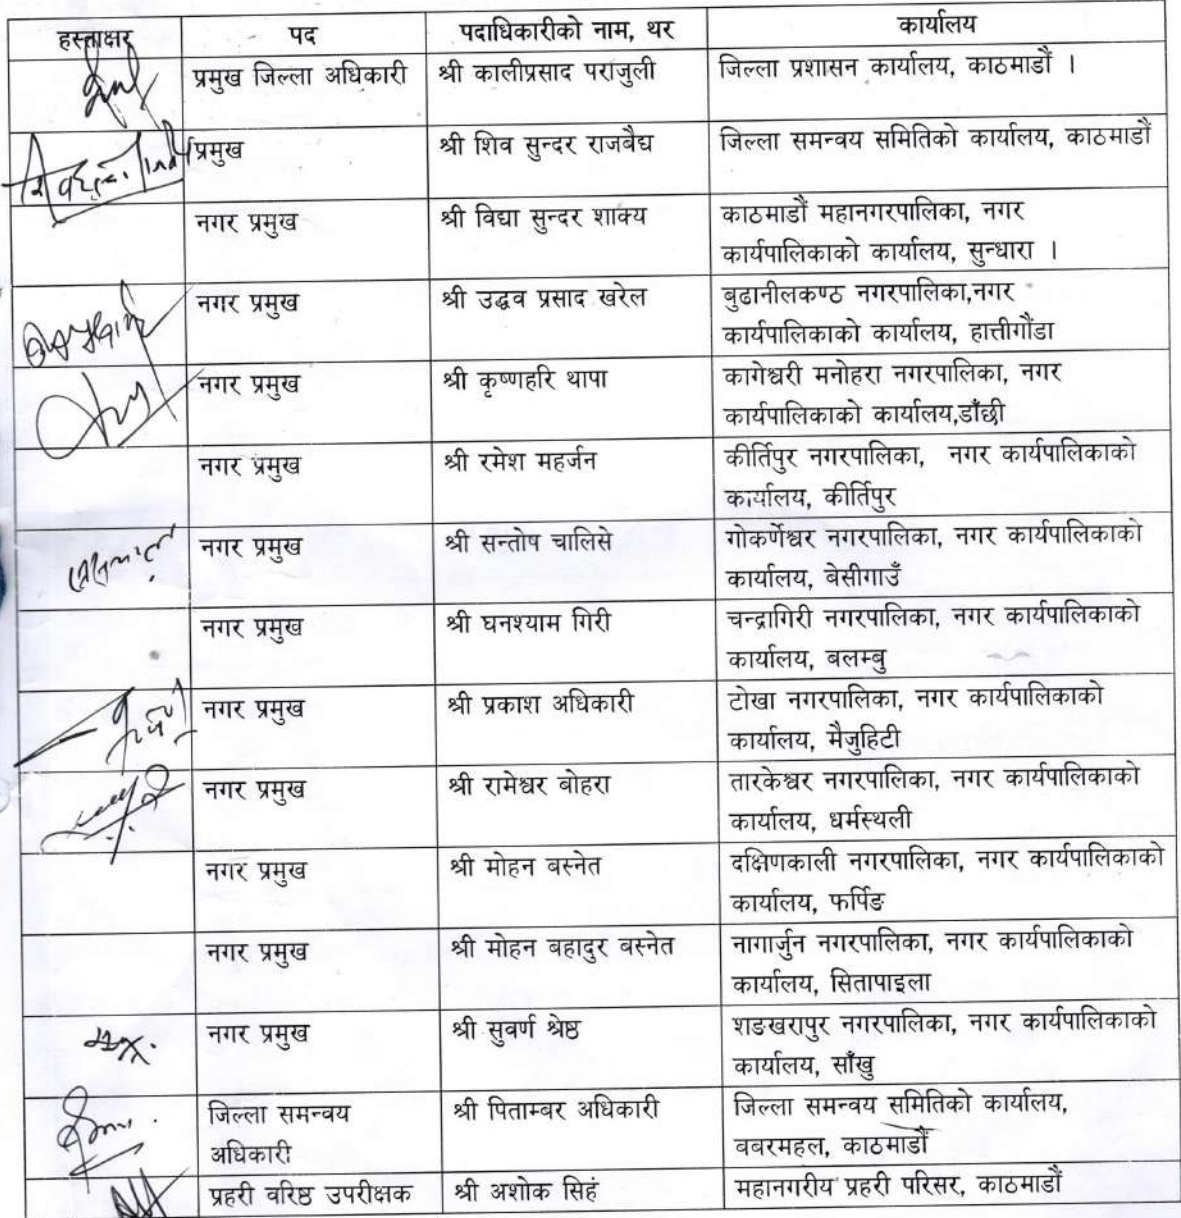 हस्ताक्षर पद पदाधिकारीको नाम, थर कार्यालय
प्रमुख जिल्ला अधिकारी श्री कालीप्रसाद पराजुली जिल्ला प्रशासन कार्यालय, काठमाडौं ।
प्रमुख श्री शिव सुन्दर राजबैद्य जिल्ला समन्वय समितिको कार्यालय, काठमाडौं
नगर प्रमुख श्री विद्या सुन्दर शाक्य काठमाडौं महानगरपालिका, नगर
कार्यपालिकाको कार्यालय, सुन्धारा ।
नगर प्रमुख श्री उद्धव प्रसाद खरेल बुढानीलकण्ठ नगरपालिका,नगर
कार्यपालिकाको कार्यालय, हात्तीगौंडा
नगर प्रमुख श्री कृष्णहरि थापा कागेश्वरी मनोहरा नगरपालिका, नगर
कार्यपालिकाको कार्यालय,डाँछी
नगर प्रमुख श्री रमेश महर्जन कीर्तिपुर नगरपालिका, नगर कार्यपालिकाको
कार्यालय, कीर्तिपुर
नगर प्रमुख श्री सन्तोष चालिसे गोकर्णेश्वर नगरपालिका, नगर कार्यपालिकाको
कार्यालय, बेसीगाउँ
नगर प्रमुख श्री घनश्याम गिरी चन्द्रागिरी नगरपालिका, नगर कार्यपालिकाको
कार्यालय, बलम्बु
नगर प्रमुख श्री प्रकाश अधिकारी टोखा नगरपालिका, नगर कार्यपालिकाको
कार्यालय, मैजुहिटी
नगर प्रमुख श्री रामेश्वर बोहरा तारकेश्वर नगरपालिका, नगर कार्यपालिकाको
कार्यालय, धर्मस्थली
नगर प्रमुख श्री मोहन बस्नेत दक्षिणकाली नगरपालिका, नगर कार्यपालिकाको
कार्यालय, फर्पिङ
नगर प्रमुख श्री मोहन बहादुर बस्नेत नागार्जुन नगरपालिका, नगर कार्यपालिकाको
कार्यालय, सितापाइला
नगर प्रमुख श्री सुवर्ण श्रेष्ठ शङखरापुर नगरपालिका, नगर कार्यपालिकाको
कार्यालय, साँखु
जिल्ला समन्वय श्री पिताम्बर अधिकारी जिल्ला समन्वय समितिको कार्यालय,
अधिकारी बबरमहल, काठमाडौं
प्रहरी वरिष्ठ उपरीक्षक श्री अशोक सिहं महानगरीय प्रहरी परिसर, काठमाडौं